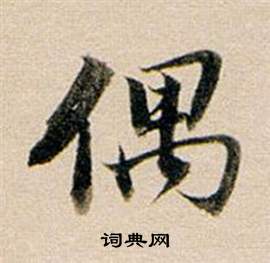 偶
词典网